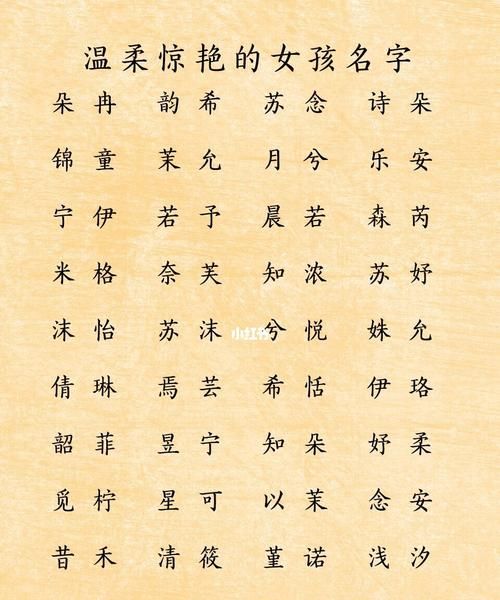 温柔惊艳的女孩名字
朵冉 韵希 苏念 诗朵
锦童 茉允 月兮 乐安
宁伊 若予 晨若 森芮
米格 奈芙 知浓 苏妤
沫怡 苏沫 兮悦 姝允
小红书
倩琳 焉芸 希恬 伊珞
韶菲 昱宁 知朵 妤柔
觅柠 星可 以茉 念安
昔禾 清筱 堇诺 浅汐